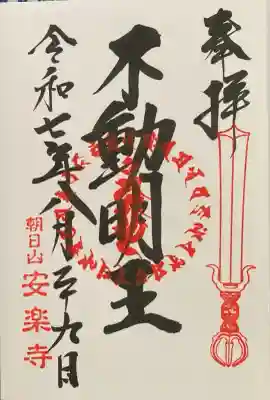 奉拝
不動明王
令和七年八月二十九日
朝日山
安楽寺